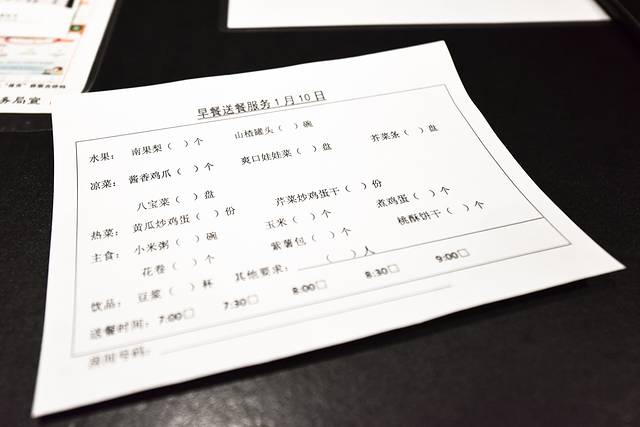 务局宣
早餐送餐服务1月10日
水果： 南果梨（ ）个 山楂罐头（ ）碗
凉菜： 酱香鸡爪（ ）个 爽口娃娃菜（ ）盘 芥菜条（ ）盘
八宝菜（ ）盘
热菜： 黄瓜炒鸡蛋（ ）份 芹菜炒鸡蛋干（ ）份
主食： 小米粥（ ）碗 玉米（ ）个 煮鸡蛋（ ）个
花卷（ ）个 紫薯包（ ）个 桃酥饼干（ ）个
饮品： 豆浆（ ）杯 其他要求： （ ）人
送餐时间： 7:00□ 7:30□ 8:00□ 8:30□ 9:00□